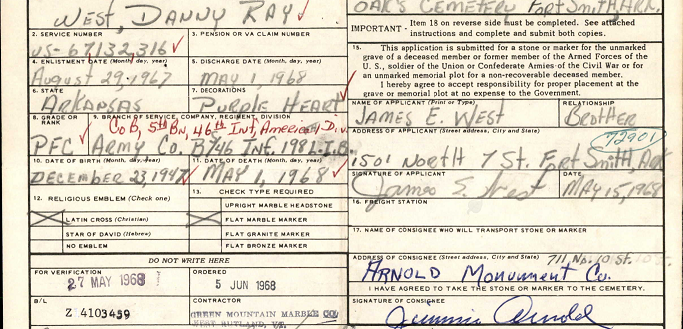 West, Danny Ray
OAK'S CEMETERY FORT SMITH, ARK.
IMPORTANT - Item 18 on reverse side must be completed. See attached
instructions and complete and submit both copies.
2. SERVICE NUMBER
US-67132,316
3. PENSION OR VA CLAIM NUMBER
4. ENLISTMENT DATE (Month, day, year)
August 29, 1967
5. DISCHARGE DATE (Month, day, year)
MAY 1, 1968
6. STATE
ARKANSAS
7. DECORATIONS
PURPLE HEART
8. GRADE OR RANK
PFC
9. BRANCH OF SERVICE, COMPANY, REGIMENT, DIVISION
Co B, 5th Bn, 46th Inf, Americal Div.
ARMY Co. B/46 INF. 198 L.I.B.
10. DATE OF BIRTH (Month, day, year)
DECEMBER 23, 1947
11. DATE OF DEATH (Month, day, year)
MAY 1, 1968
12. RELIGIOUS EMBLEM (Check one)
LATIN CROSS (Christian)
STAR OF DAVID (Hebrew)
NO EMBLEM
13. CHECK TYPE REQUIRED
UPRIGHT MARBLE HEADSTONE
FLAT MARBLE MARKER
FLAT GRANITE MARKER
FLAT BRONZE MARKER
DO NOT WRITE HERE
FOR VERIFICATION
27 MAY 1968
ORDERED
5 JUN 1968
B/L
Z 4103459
CONTRACTOR
GREEN MOUNTAIN MARBLE CO.
WEST RUTLAND, VT.
15. This application is submitted for a stone or marker for the unmarked
grave of a deceased member or former member of the Armed Forces of the
U. S., soldier of the Union or Confederate Armies of the Civil War or for
an unmarked memorial plot for a non-recoverable deceased member.
I hereby agree to accept responsibility for proper placement at the
grave or memorial plot at no expense to the Government.
NAME OF APPLICANT (Print or Type)
JAMES E. WEST
RELATIONSHIP
BROTHER
ADDRESS OF APPLICANT (Street address, City and State)
72901
1501 NORTH 7 ST. FORT SMITH, ARK
SIGNATURE OF APPLICANT
James E. West
DATE
MAY 15, 1968
16. FREIGHT STATION
17. NAME OF CONSIGNEE WHO WILL TRANSPORT STONE OR MARKER
ADDRESS OF CONSIGNEE (Street address, City and State)
711 No. 10 St.
ARNOLD MONUMENT Co.
I HAVE AGREED TO TAKE THE STONE OR MARKER TO THE CEMETERY.
SIGNATURE OF CONSIGNEE
Jimmie Arnold